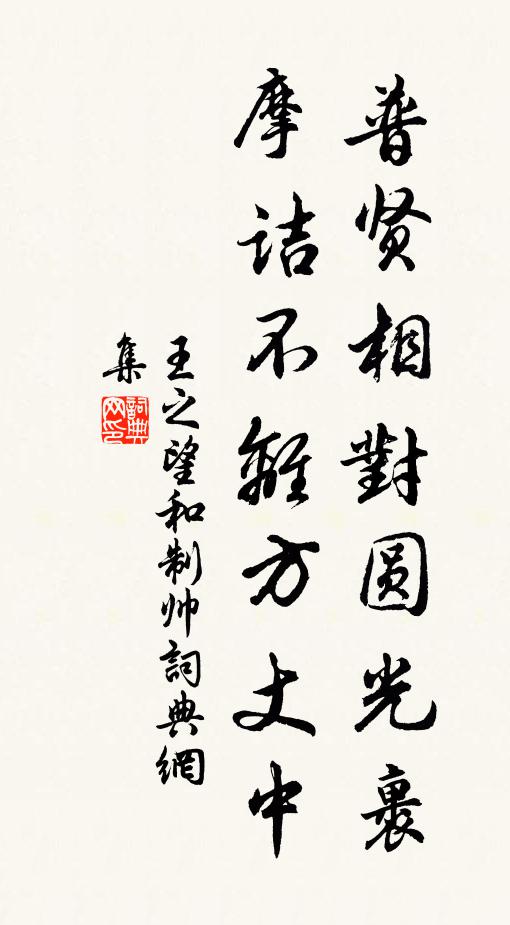 普贤相對圆光裹
摩詰不離方丈中
王之望和制帅詞典網
集
詞典网印